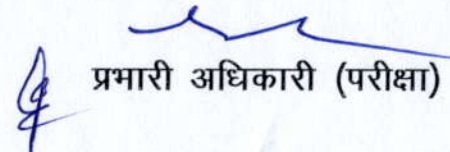 प्रभारी अधिकारी (परीक्षा)